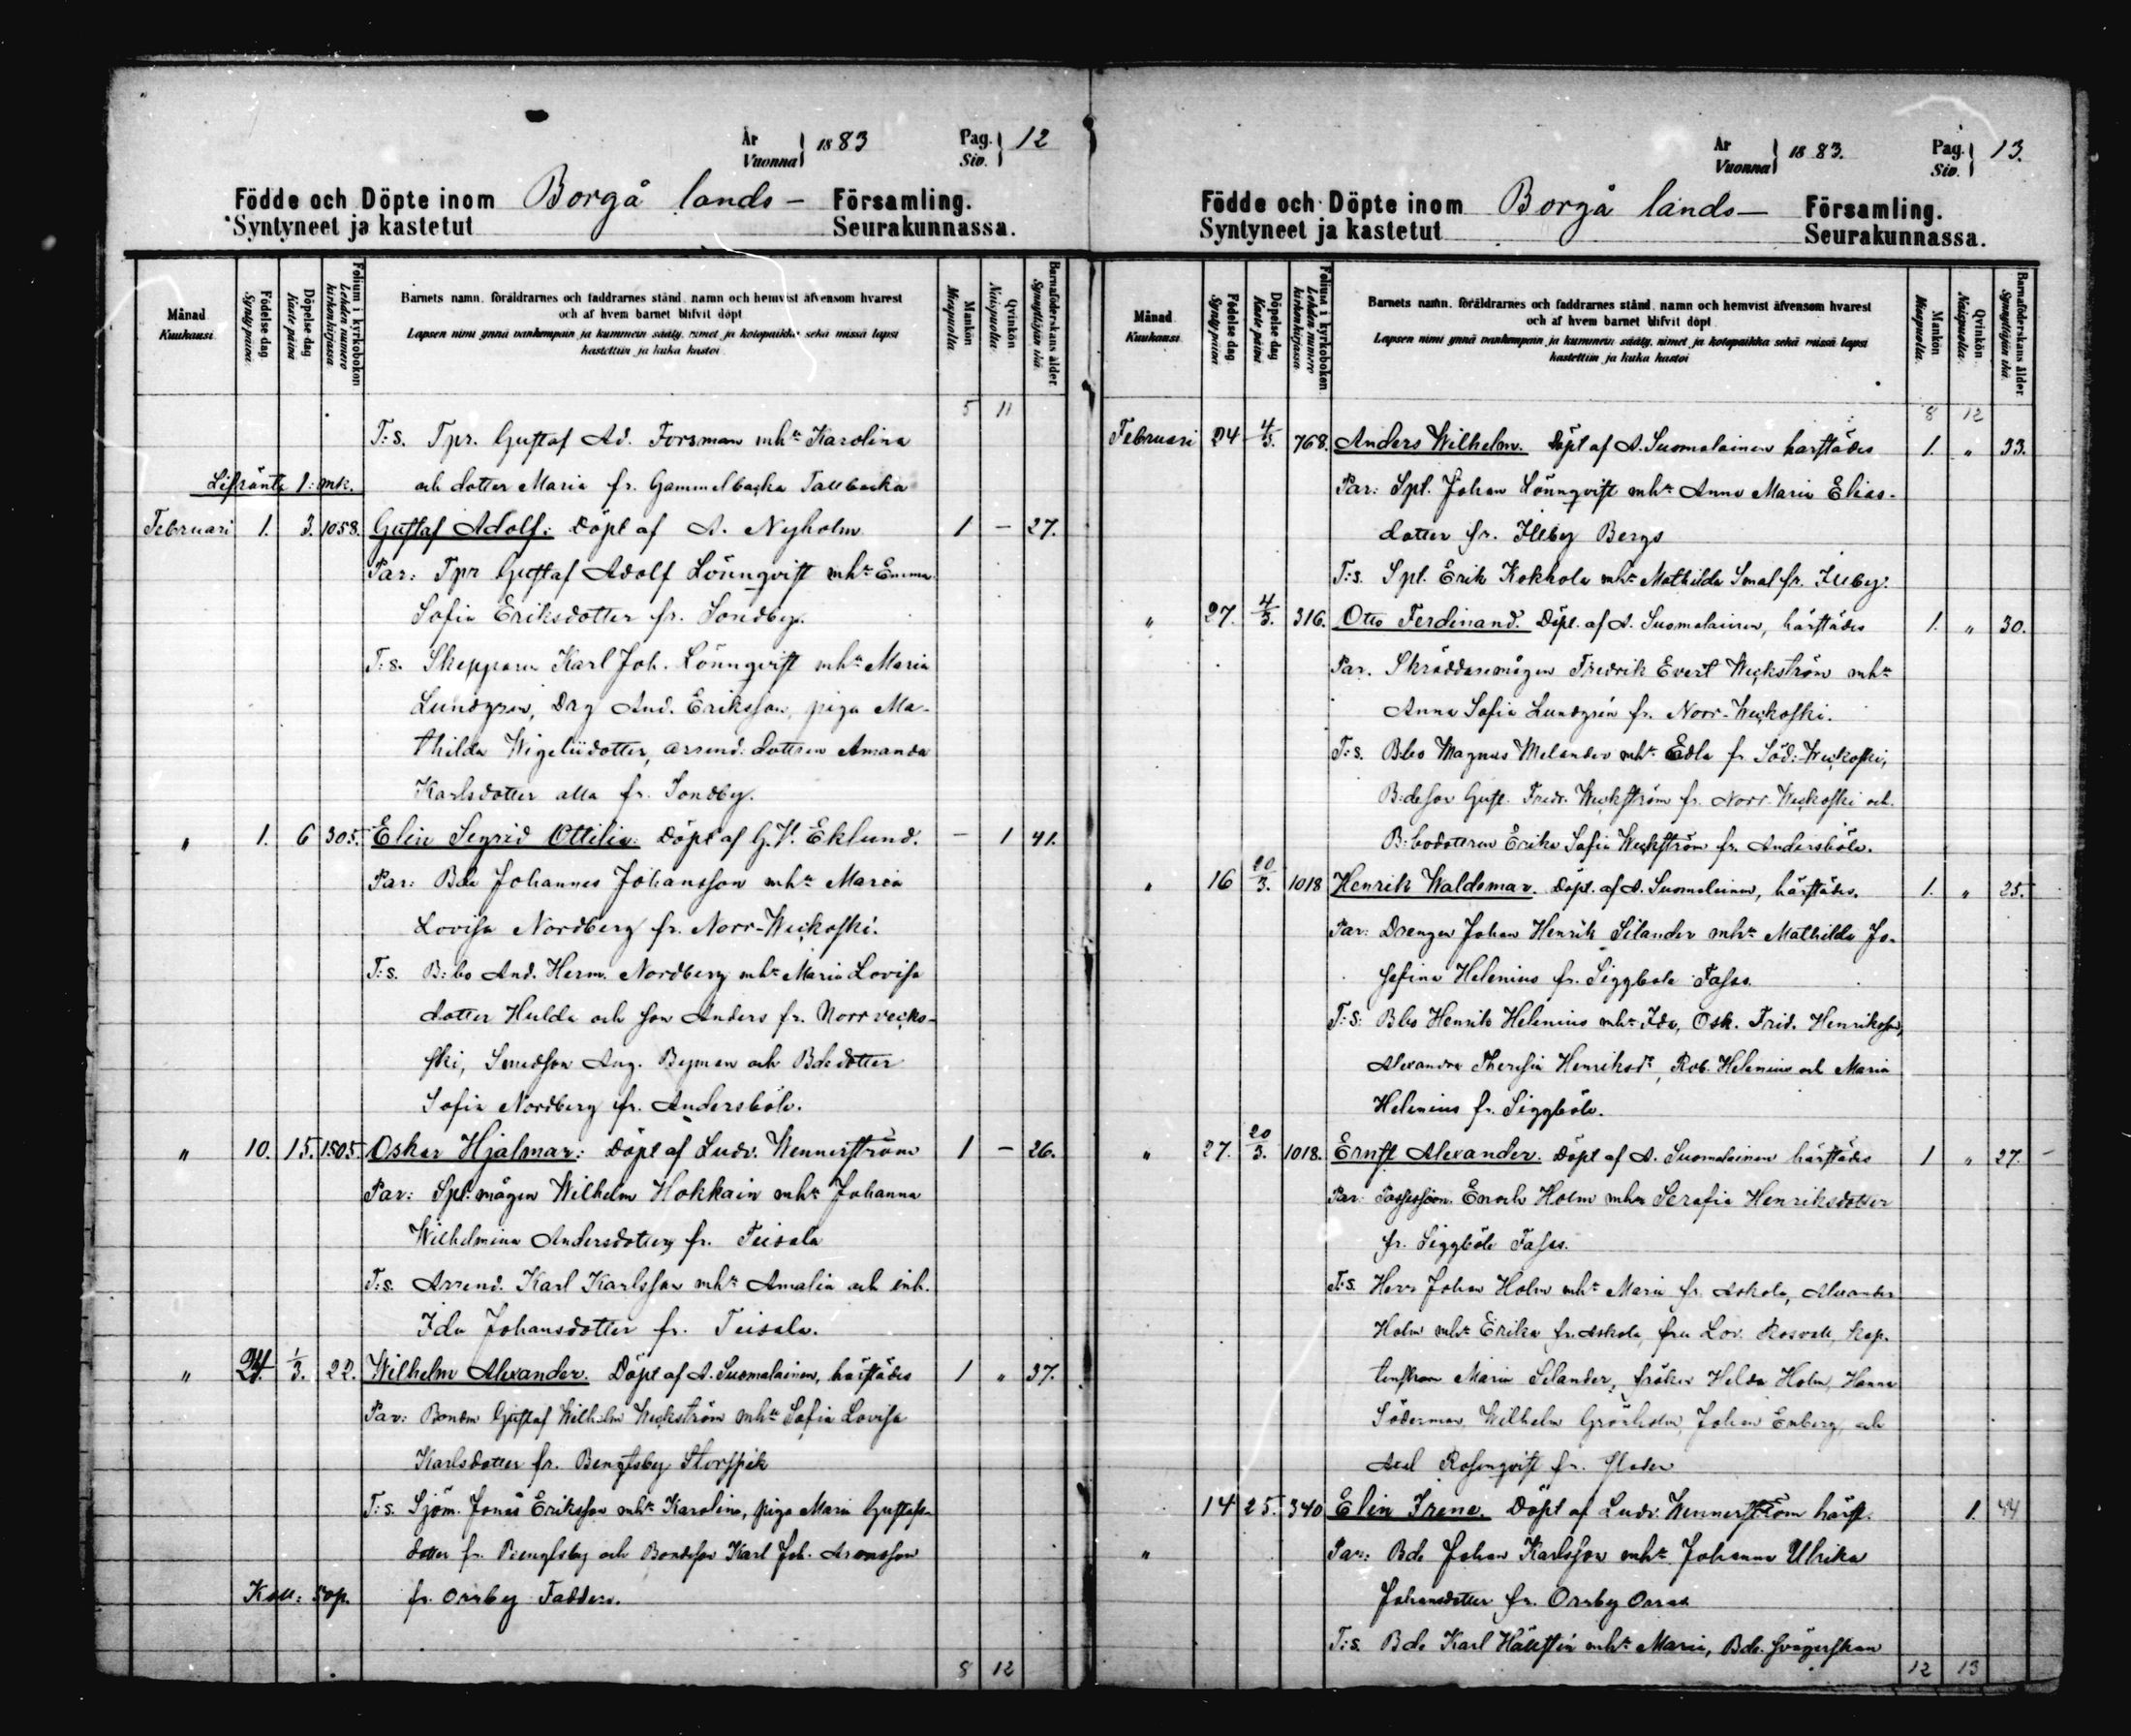 År 1883 Pag. 12
Vuonna Siv.
Födde och Döpte inom Borgå lands- Församling.
Syntyneet ja kastetut Seurakunnassa.
Månad Kuukausi
Födelse dag Synty päivä
Döpelse dag Kaste päivä
Folium i kyrkoboken Lehden numero kirkonkirjassa
Barnets namn, föräldrarnes och faddrarnes stånd, namn och hemvist äfvensom hvarest
och af hvem barnet blifvit döpt
Lapsen nimi ynnä vanhempain ja kummein sääty, nimet ja kotopaikka sekä missä lapsi
kastettiin ja kuka kastoi
Mankön Miespuolia
Qvinkön Naispuolia
Barnaföderskans ålder Synnyttäjän ikä
5 11
T:s. Tpr. Gustaf Ad. Forsman mhu Karolina
Lifränta 1: mk. och dotter Maria fr. Gammelbacka Tallbacka
Februari 1. 3. 1058. Gustaf Adolf: Döpt af A. Nyholm 1 – 27.
Par: Tpr Gustaf Adolf Lönnqvist mhu Emma
Sofia Eriksdotter fr. Sondby.
T:s. Skepparen Karl Joh. Lönnqvist mhu Maria
Lundgren, Drg And. Eriksson, piga Ma-
thilda Wigeliidotter, arrend. dottren Amanda
Karlsdotter alla fr. Sondby.
" 1. 6 305. Elin Segrid Ottilia: Döpt af G. V. Eklund. – 1 41.
Par: Bde Johannes Johansson mhu Maria
Lovisa Nordberg fr. Norr-Weckoski.
T:s. B:bo And. Herm. Nordberg mhu Maria Lovisa
dotter Hulda och son Anders fr. Norrvecko-
ski, Smedson Aug. Byman och Bdedotter
Sofia Nordberg fr. Andersböle.
" 10. 15. 1505. Oskar Hjalmar: Döpt af Ludv. Wennerström 1 – 26.
Par: Spl. mågen Wilhelm Hokkain mhu Johanna
Wilhelmina Andersdotter fr. Teisala
T:s. Arrend. Karl Karlsson mhu Amalia och inh.
Ida Johansdotter fr. Teisala.
" 24. 1/3. 22. Wilhelm Alexander. Döpt af A. Suomalainen, härstädes 1 " 37.
Par: Bonden Gustaf Wilhelm Weckström mhu Sofia Lovisa
Karlsdotter fr. Bengtsby Storspik
T:s. Sjöm. Jonas Eriksson mhu Karolina, piga Maria Gustafs-
dotter fr. Bengtsby och Bondeson Karl Joh. Aronsson
Koll: 50p. fr. Orrby Fadders.
8 12
År 1883. Pag. 13.
Vuonna Siv.
Födde och Döpte inom Borgå lands- Församling.
Syntyneet ja kastetut Seurakunnassa.
Månad Kuukausi
Födelse dag Synty päivä
Döpelse dag Kaste päivä
Folium i kyrkoboken Lehden numero kirkonkirjassa
Barnets namn, föräldrarnes och faddrarnes stånd, namn och hemvist äfvensom hvarest
och af hvem barnet blifvit döpt
Lapsen nimi ynnä vanhempain ja kummein sääty, nimet ja kotopaikka sekä missä lapsi
kastettiin ja kuka kastoi
Mankön Miespuolia
Qvinkön Naispuolia
Barnaföderskans ålder Synnyttäjän ikä
8 12
Februari 24 4/3. 768. Anders Wilhelm. Döpt af A. Suomalainen härstädes 1. " 33.
Par: Spl. Johan Lönnqvist mhu Anna Maria Elias-
dotter fr. Illby Bergs
T:s. Spl. Erik Kokhola mhu Mathilda Smal fr. Illby.
" 27. 4/3. 316. Otto Ferdinand. Döpt. af A. Suomalainen, härstädes 1. " 30.
Par. Skräddaremågen Fredrik Evert Weckström mhu
Anna Sofia Lundgrén fr. Norr-Weckoski.
T:s. B:bo Magnus Melander mhu Edla fr Söd:-Weckoski,
B:deson Gust. Fredr. Weckström fr. Norr Weckoski och
B:bodottren Erika Sofia Weckström fr. Andersböle.
" 16 20/3. 1018 Henrik Waldemar. Döpt. af A. Suomalainen, härstädes. 1. " 25.
Par: Drengen Johan Henrik Silander mhu Mathilda Jo-
sefina Helenius fr. Siggböle Tasas.
T:s: B:bo Henrik Helenius mhu Ida, Osk. Frid. Henriksson,
Alexandra Theresia Henriksdr, Rob. Helenius och Maria
Helenius fr. Siggböle.
" 27. 20/3. 1018. Ernst Alexander. Döpt af A. Suomalainen härstädes 1 " 27.
Par: Possession. Enoch Holm mhu Serafia Henriksdotter
fr. Siggböle Tasas.
T:s. Herr Johan Holm mhu Maria fr. Askola, Alexander
Holm mhu Erika fr. Askola, fru Lov. Rosvall, kap-
tensfrun Maria Selander, fröken Helda Holm, Hanna
Söderman, Wilhelm Grönholm, Johan Enberg och
Axel Rosenqvist fr. staden
14 25. 340 Elin Irene. Döpt af Ludv. Wennerström härst. 1. 44
" Par: Bde Johan Karlsson mhu Johanna Ulrika
Johansdotter fr. Orrby Orras
T:s. Bde Karl Hällstén mhu Maria, Bde. svägerskan
12 13